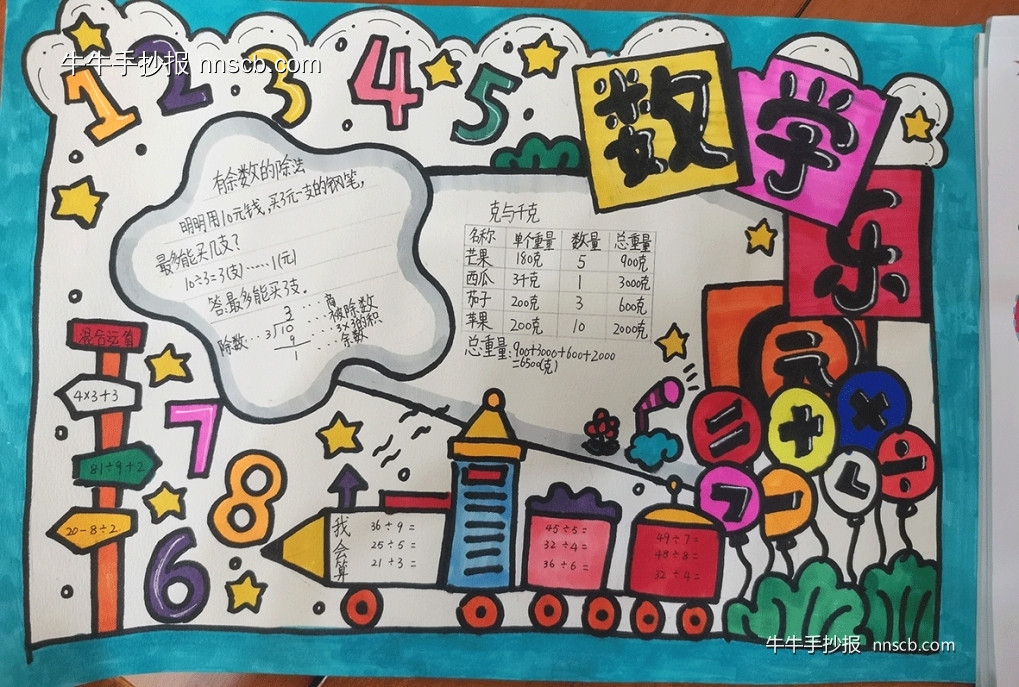 牛牛手抄报 nnscb.com
1 2 3 4 5
数学乐园
有余数的除法
明明用10元钱,买3元一支的钢笔,
最多能买几支?
10÷3=3(支)……1(元)
答:最多能买3支.
3 ……商
除数…3√10 ……被除数
9 ……3×3的积
1 ……余数
克与千克
名称 单个重量 数量 总重量
芒果 180克 5 900克
西瓜 3千克 1 3000克
茄子 200克 3 600克
苹果 200克 10 2000克
总重量:900+3000+600+2000
=6500(克)
混合运算
4×3+3
81÷9+2
20-8÷2
7
8
6
我会算
36÷9=
25÷5=
21÷3=
45÷5=
32÷4=
36÷6=
49÷7=
48÷8=
32÷4=
= + × ÷
> - <
牛牛手抄报 nnscb.com